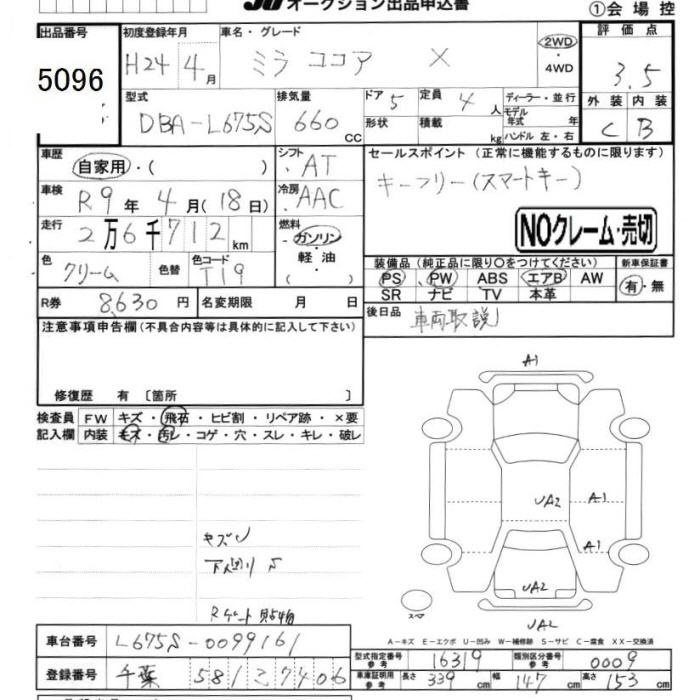 JU オークション出品申込書
①会場控
出品番号 初度登録年月 車名・グレード 評価点
5096
H24 4月 ミラ ココア X 2WD・4WD 3.5
型式 排気量 ドア 5 定員 4人 ディーラー・並行 外装 内装
DBA-L675S 660cc 形状 積載 kg モデル年式 年 C B
ハンドル 左・右
車歴 自家用・( ) シフト AT セールスポイント (正常に機能するものに限ります)
車検 R9年 4月(18日) 冷房 AAC キーフリー(スマートキー)
走行 2万6千712km 燃料 ガソリン・軽油 ( ) NOクレーム・売切
色 クリーム 色替 色コード T19 装備品 (純正品に限り○をつけてください) 新車保証書
PS PW ABS エアB AW 有・無
SR ナビ TV 本革
R券 8,630円 名変期限 月 日 後日品 車両取説
注意事項申告欄(不具合内容等は具体的に記入して下さい)
修復歴 有 〔箇所 〕
検査員記入欄 FW キズ・飛石・ヒビ割・リペア跡・×要
内装 キズ・汚レ・コゲ・穴・スレ・キレ・破レ
A1
UA2 A1
A1
UA2
UA2
スペア
キズ
下廻り S
Rゲート
A-キズ E-エクボ U-凹み W-補修跡 S-サビ C-腐食 XX-交換済
車台番号 L675S-0099161
型式指定番号 参考 16319 類別区分番号 参考 0009
登録番号 千葉 581 2 7406
車庫証明用 参考 長さ 339cm 幅 147cm 高さ 153cm